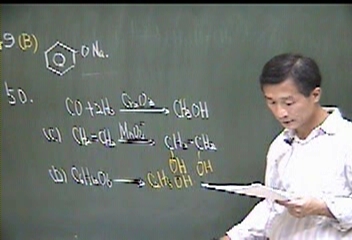 9 (B) ONa
50.
CO + 2H₂ → CH₃OH
(c) CH₂=CH₂ MnO₄⁻ → CH₂-CH₂
OH OH
(b) C₆H₁₂O₆ → C₂H₅OH